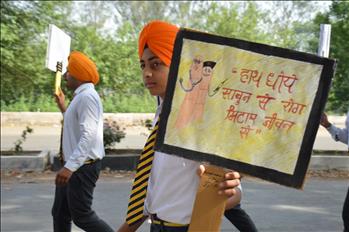 "हाथ धोये
साबुन से रोग
मिटाए जीवन
से"